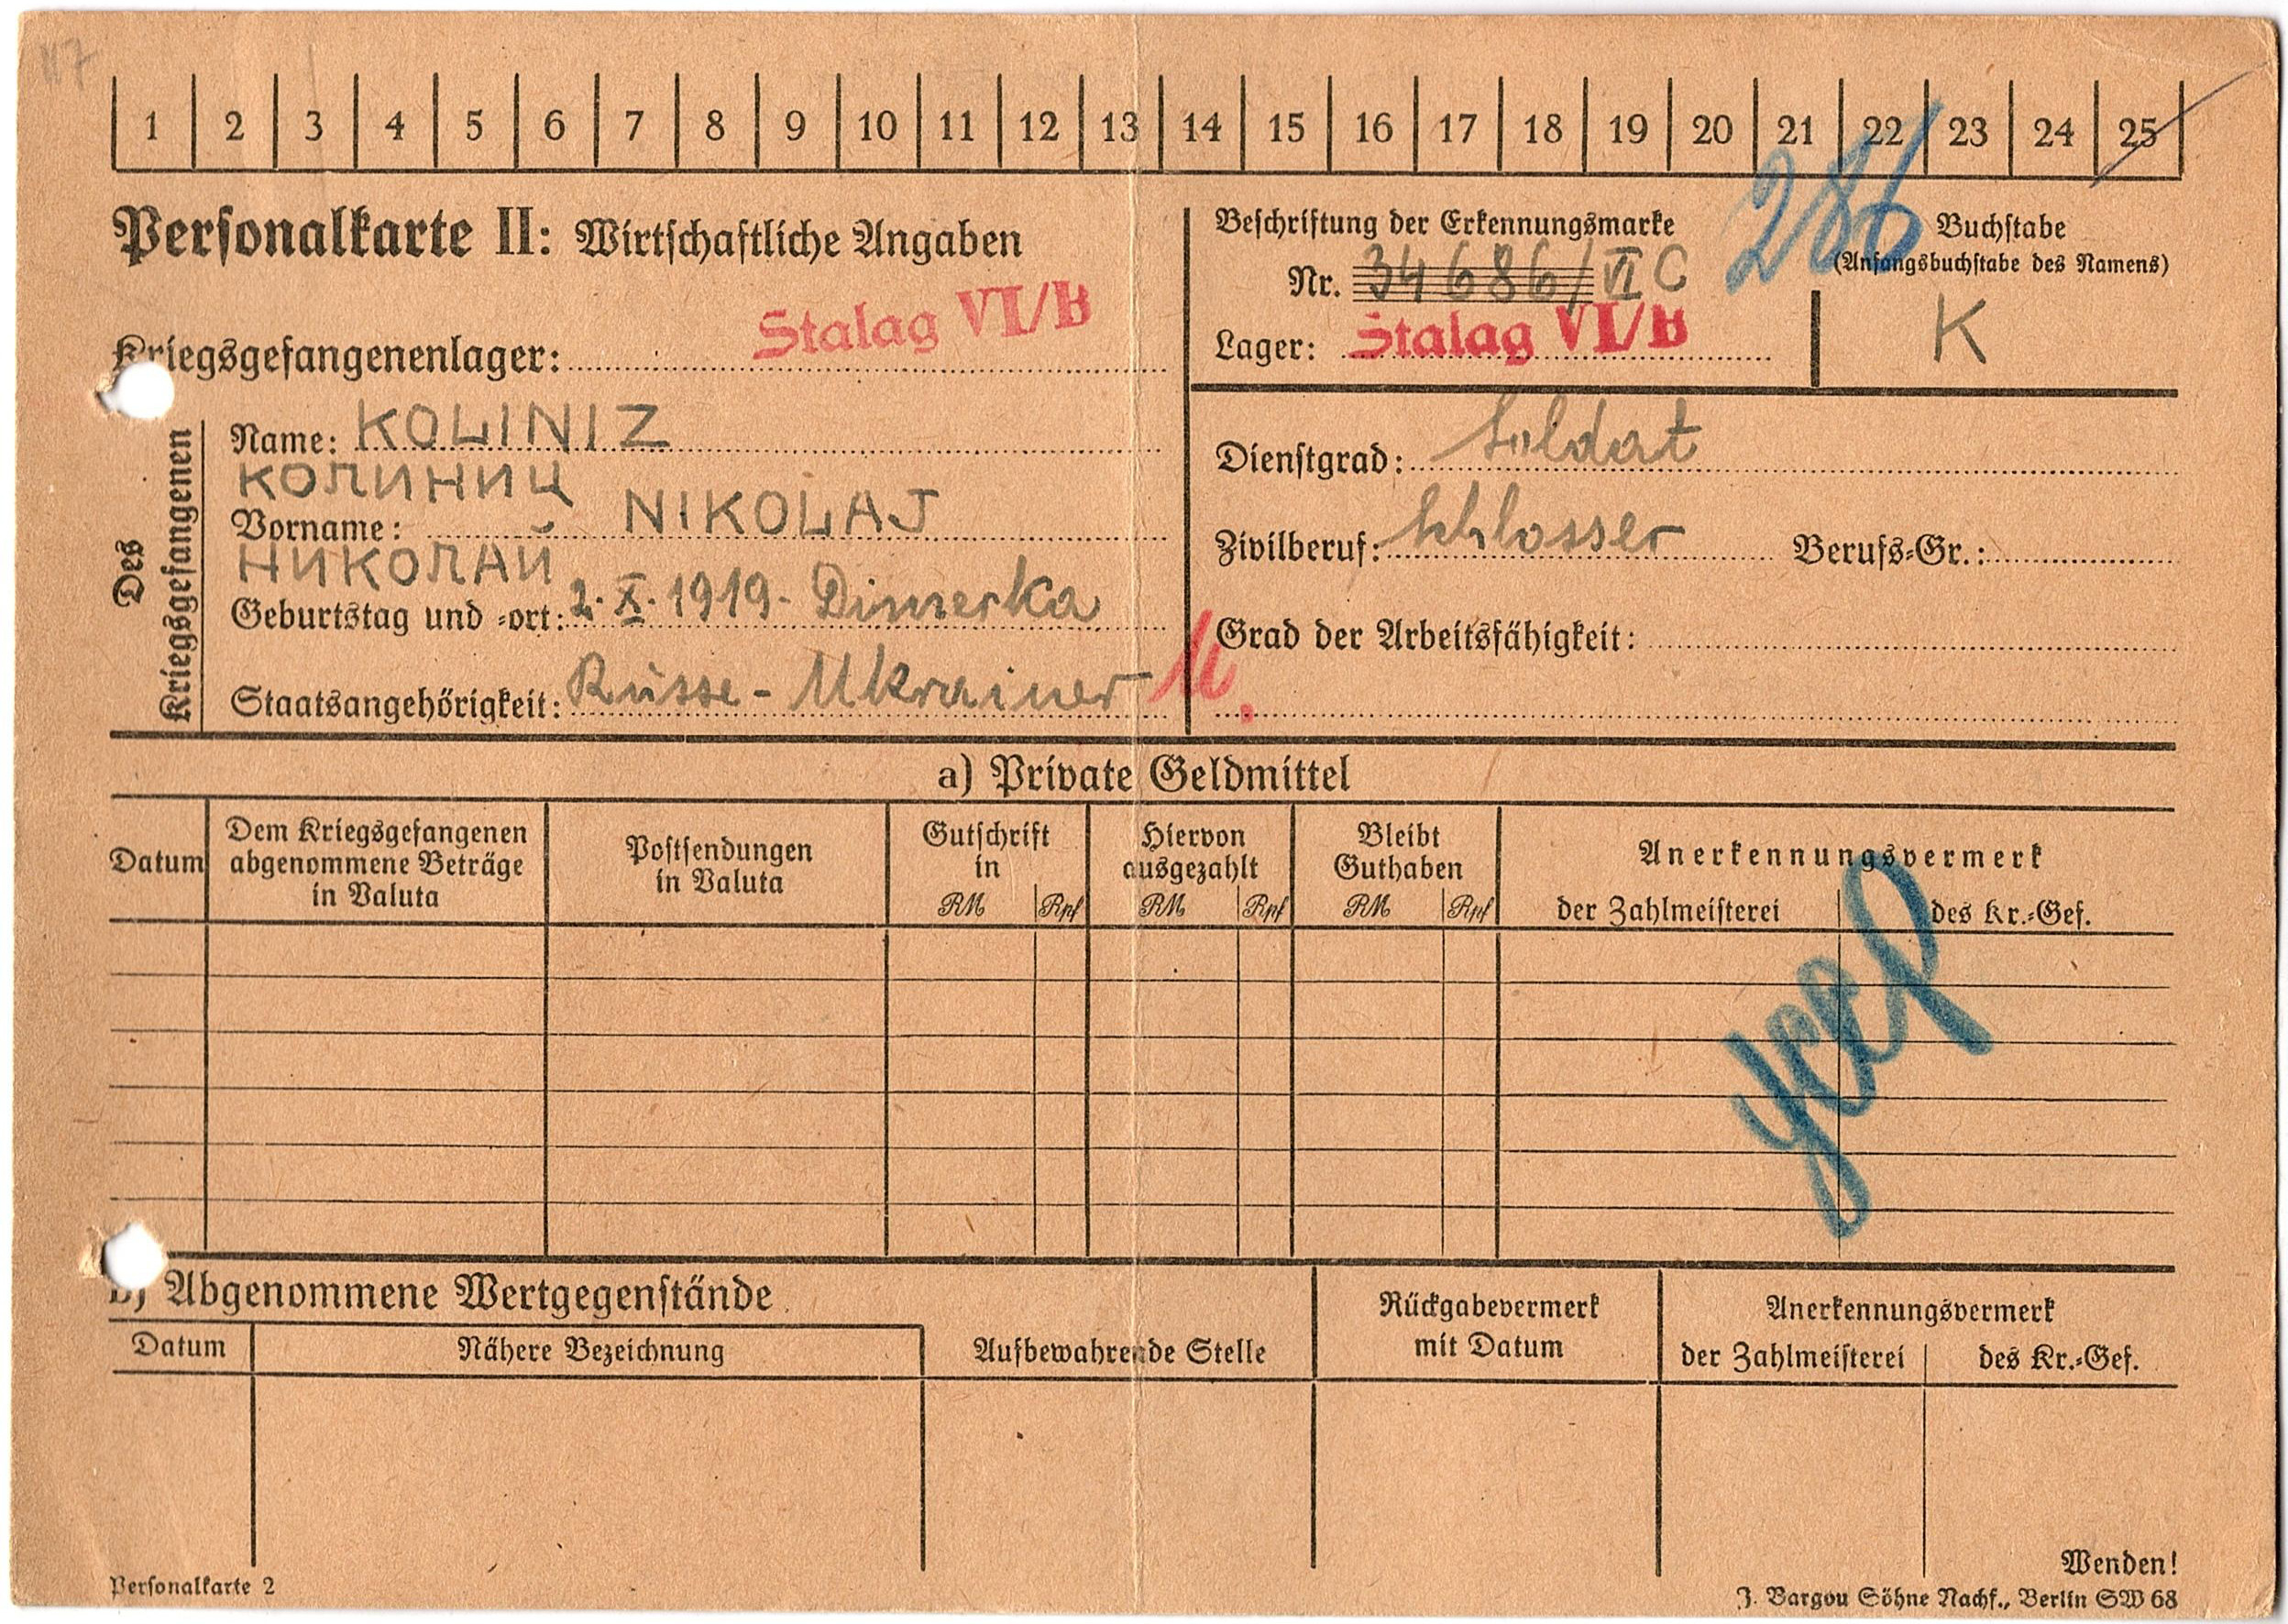 117
1 2 3 4 5 6 7 8 9 10 11 12 13 14 15 16 17 18 19 20 21 22 23 24 25
286
Personalkarte II: Wirtschaftliche Angaben
Kriegsgefangenenlager: Stalag VI/B
Beschriftung der Erkennungsmarke
Nr. 34686/VI C
Lager: Stalag VI/B
Buchstabe
(Anfangsbuchstabe des Namens)
K
Des Kriegsgefangenen
Name: KOLINIZ
КОЛИНИЦ
Vorname: NIKOLAJ
НИКОЛАЙ
Geburtstag und -ort: 2. X. 1919 - Dimerka
Staatsangehörigkeit: Russe - Ukrainer
U.
Dienstgrad: Soldat
Zivilberuf: Schlosser Berufs-Gr.:
Grad der Arbeitsfähigkeit:
a) Private Geldmittel
Datum
Dem Kriegsgefangenen
abgenommene Beträge
in Valuta
Postsendungen
in Valuta
Gutschrift
in
RM Rpf
Hiervon
ausgezahlt
RM Rpf
Bleibt
Guthaben
RM Rpf
Anerkennungsvermerk
der Zahlmeisterei des Kr.-Gef.
b) Abgenommene Wertgegenstände
Datum Nähere Bezeichnung
Aufbewahrende Stelle
Rückgabevermerk
mit Datum
Anerkennungsvermerk
der Zahlmeisterei des Kr.-Gef.
Wenden!
Personalkarte 2
J. Bargou Söhne Nachf., Berlin SW 68